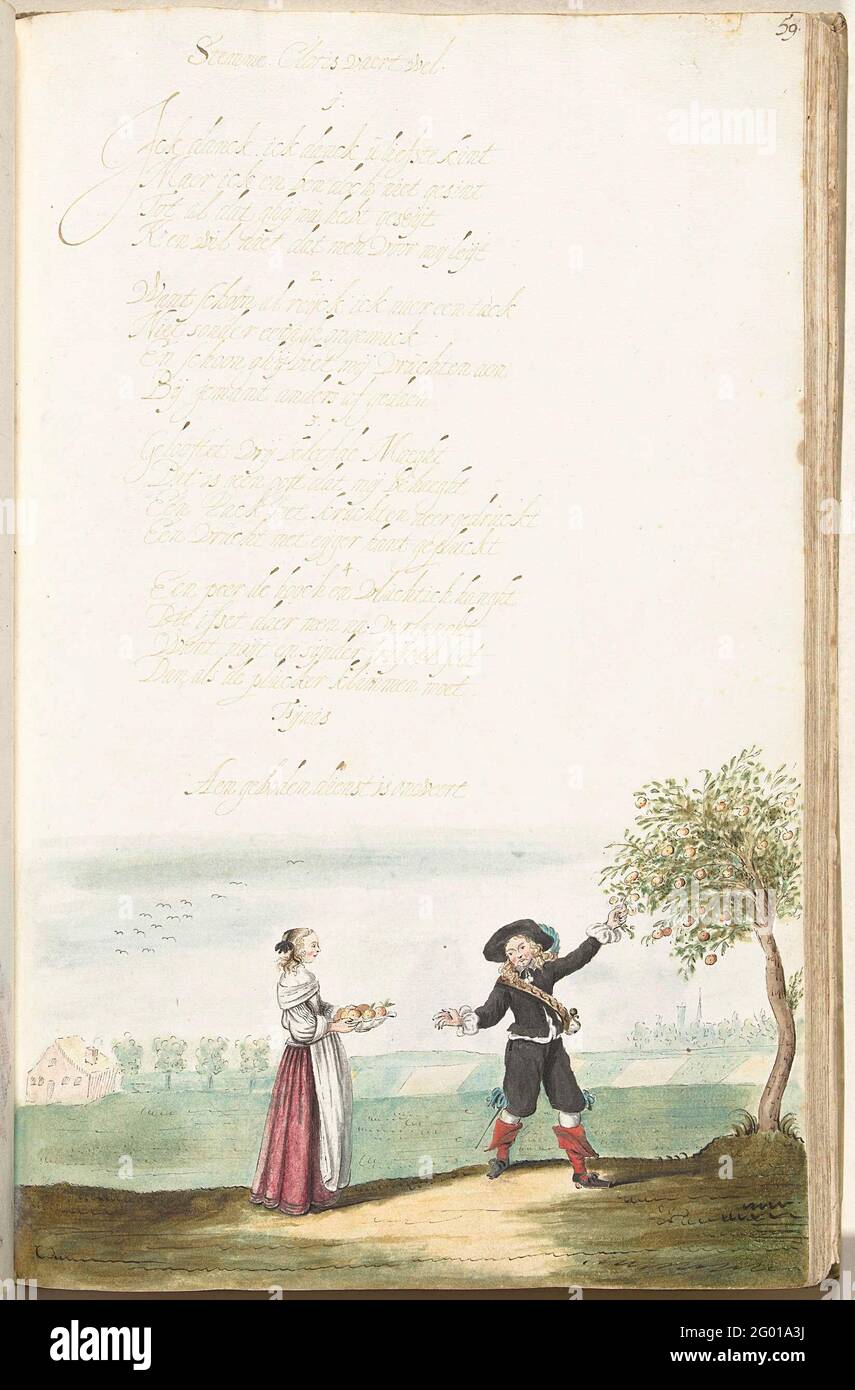 59.
Stemme. Cloris vaert wel.
1.
Ick danck ick danck u liefste kint
Maer ick en ben doch niet gesint
Tot al dat ghy nu hebt geseijt
K en wil niet dat men voor mij
2.
Want schoon al reijck ick naer een tack
Niet sonder eenigh ongemack
En schoon ghy biet mij vruchten aen
Bij jemant anders af gedaen
3.
Gelooftet vrij beleefde Maeght
Dat is een oeft dat mij behaeght
Een Tack met kruchten neer gedruckt
Een vrucht met eijger hant gepluckt
4.
Een peer de hooch en vluchtich hanght
Dit isset daer men na verlanght
Want noijt en
Dan als de plucker klimmen moet
Fijnis
Aen geboden dienst is onweert
alamy
Image ID: 2G01A3J
www.alamy.com